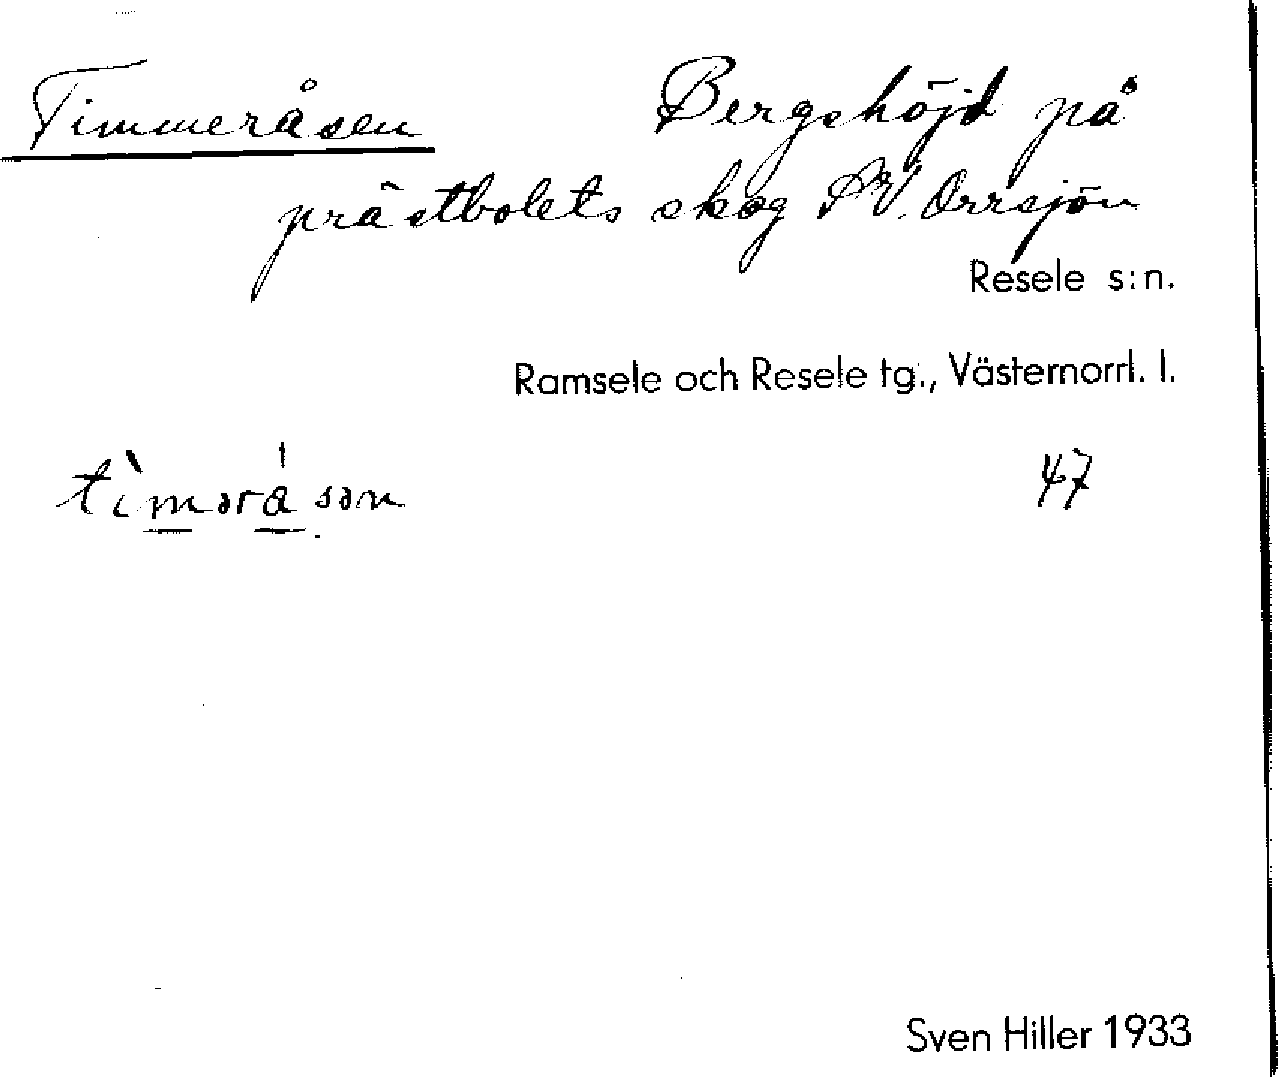 Timmeråsen Bergshöjd på
prästbolets skog SV. Orrsjön
Resele s:n.
Ramsele och Resele tg., Västernorrl. l.
tìmərǻsən 47
Sven Hiller 1933